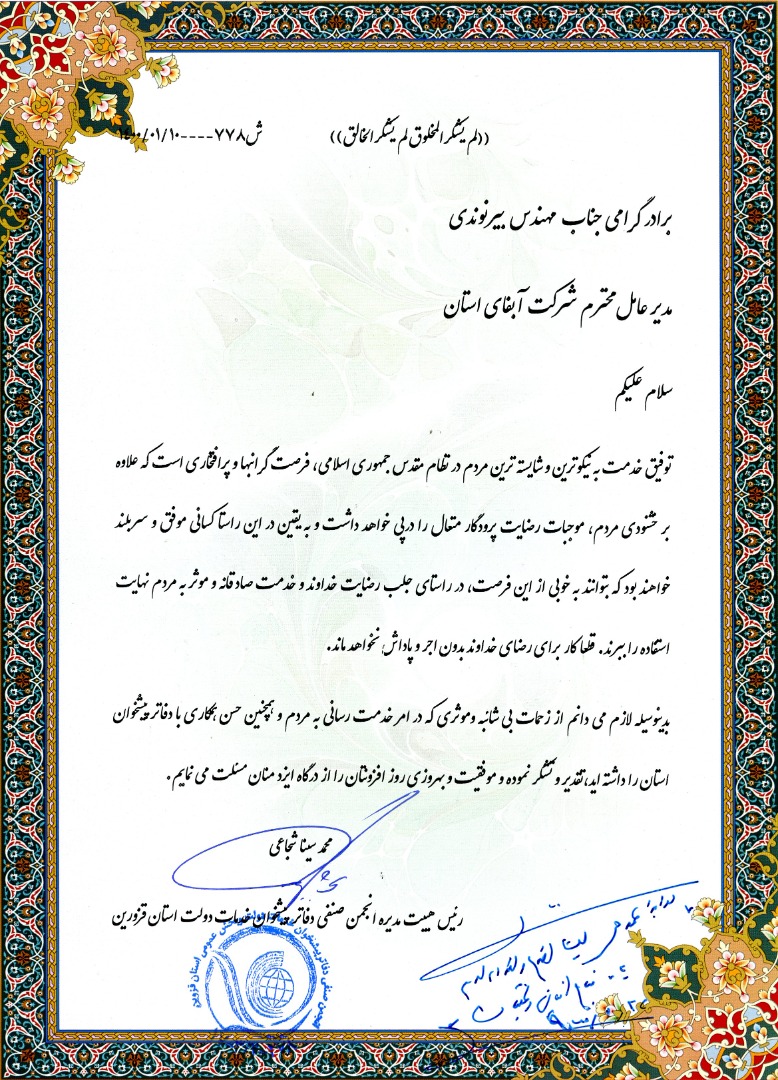 ((لم یشکر المخلوق لم یشکر الخالق))
ش۷۷۸----۱۴۰۰/۰۱/۱۰
برادر گرامی جناب مهندس بیرنوندی
مدیر عامل محترم شرکت آبفای استان
سلام علیکم
توفیق خدمت به نیکوترین و شایسته ترین مردم در نظام مقدس جمهوری اسلامی، فرصت گرانبها و پرافتخاری است که علاوه
بر خشنودی مردم، موجبات رضایت پرودگار متعال را درپی خواهد داشت و به یقین در این راستا کسانی موفق و سربلند
خواهند بود که بتوانند به خوبی از این فرصت، در راستای جلب رضایت خداوند و خدمت صادقانه و موثر به مردم نهایت
استفاده را ببرند. قطعا کار برای رضای خداوند بدون اجر و پاداش نخواهد ماند.
بدینوسیله لازم می دانم از زحمات بی شائبه وموثری که در امر خدمت رسانی به مردم و همچنین حسن همکاری با دفاتر پیشخوان
استان را داشته اید، تقدیر و تشکر نموده و موفقیت و بهروزی روز افزونتان را از درگاه ایزد منان مسئلت می نمایم.
محمد سینا شجاعی
رئیس هیئت مدیره انجمن صنفی دفاتر پیشخوان خدمات دولت استان قزوین